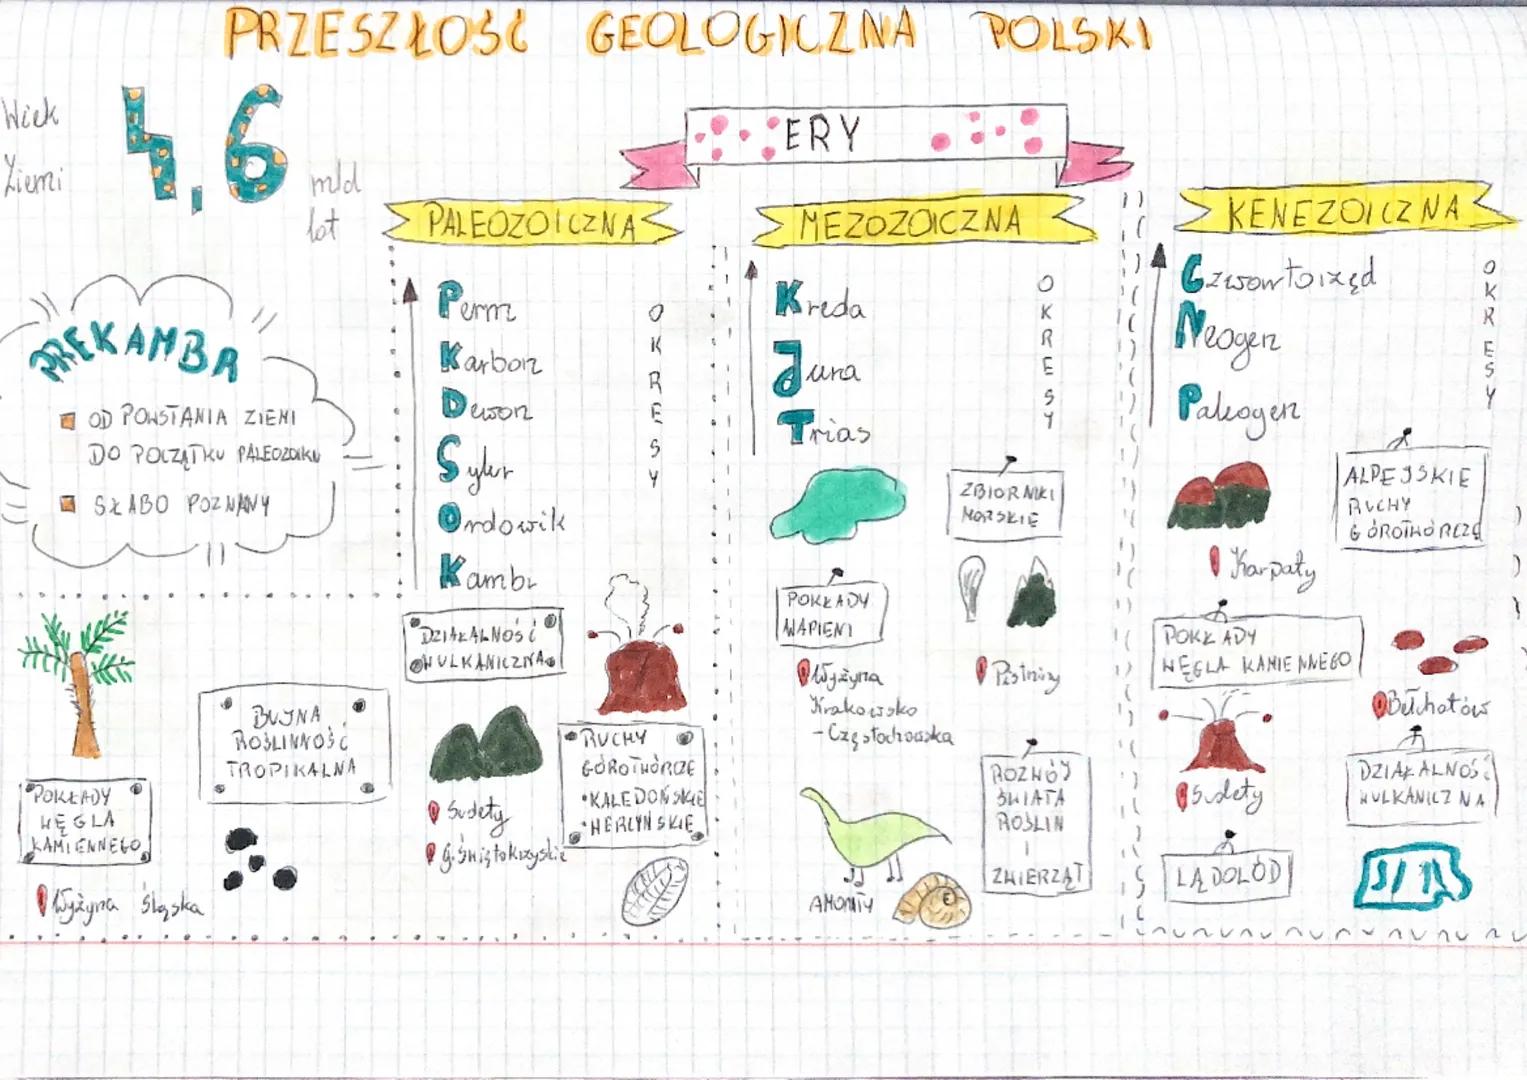 PRZESZŁOŚĆ GEOLOGICZNA POLSKI
Wiek
Ziemi
4,6
mld
lat
ERY
PREKAMBR
OD POWSTANIA ZIEMI
DO POCZĄTKU PALEOZOIKU
SŁABO POZNANY
PALEOZOICZNA
Perm
Karbon
Dewon
Sylur
Ordowik
Kambr
OKRESY
DZIAŁALNOŚĆ
WULKANICZNA
BUJNA
ROŚLINNOŚĆ
TROPIKALNA
POKŁADY
WĘGLA
KAMIENNEGO
Wyżyna Śląska
RUCHY
GÓROTWÓRCZE
•KALEDOŃSKIE
•HERCYŃSKIE
Sudety
G. Świętokrzyskie
MEZOZOICZNA
Kreda
Jura
Trias
OKRESY
ZBIORNIKI
MORSKIE
POKŁADY
WAPIENI
Wyżyna
Krakowsko
-Częstochowska
ROZWÓJ
ŚWIATA
ROŚLIN
I
ZWIERZĄT
AMONITY
KENEZOICZNA
Czwartorzęd
Neogen
Paleogen
OKRESY
ALPEJSKIE
RUCHY
GÓROTWÓRCZE
Karpaty
POKŁADY
WĘGLA KAMIENNEGO
Bełchatów
DZIAŁALNOŚĆ
WULKANICZNA
Sudety
LĄDOLÓD